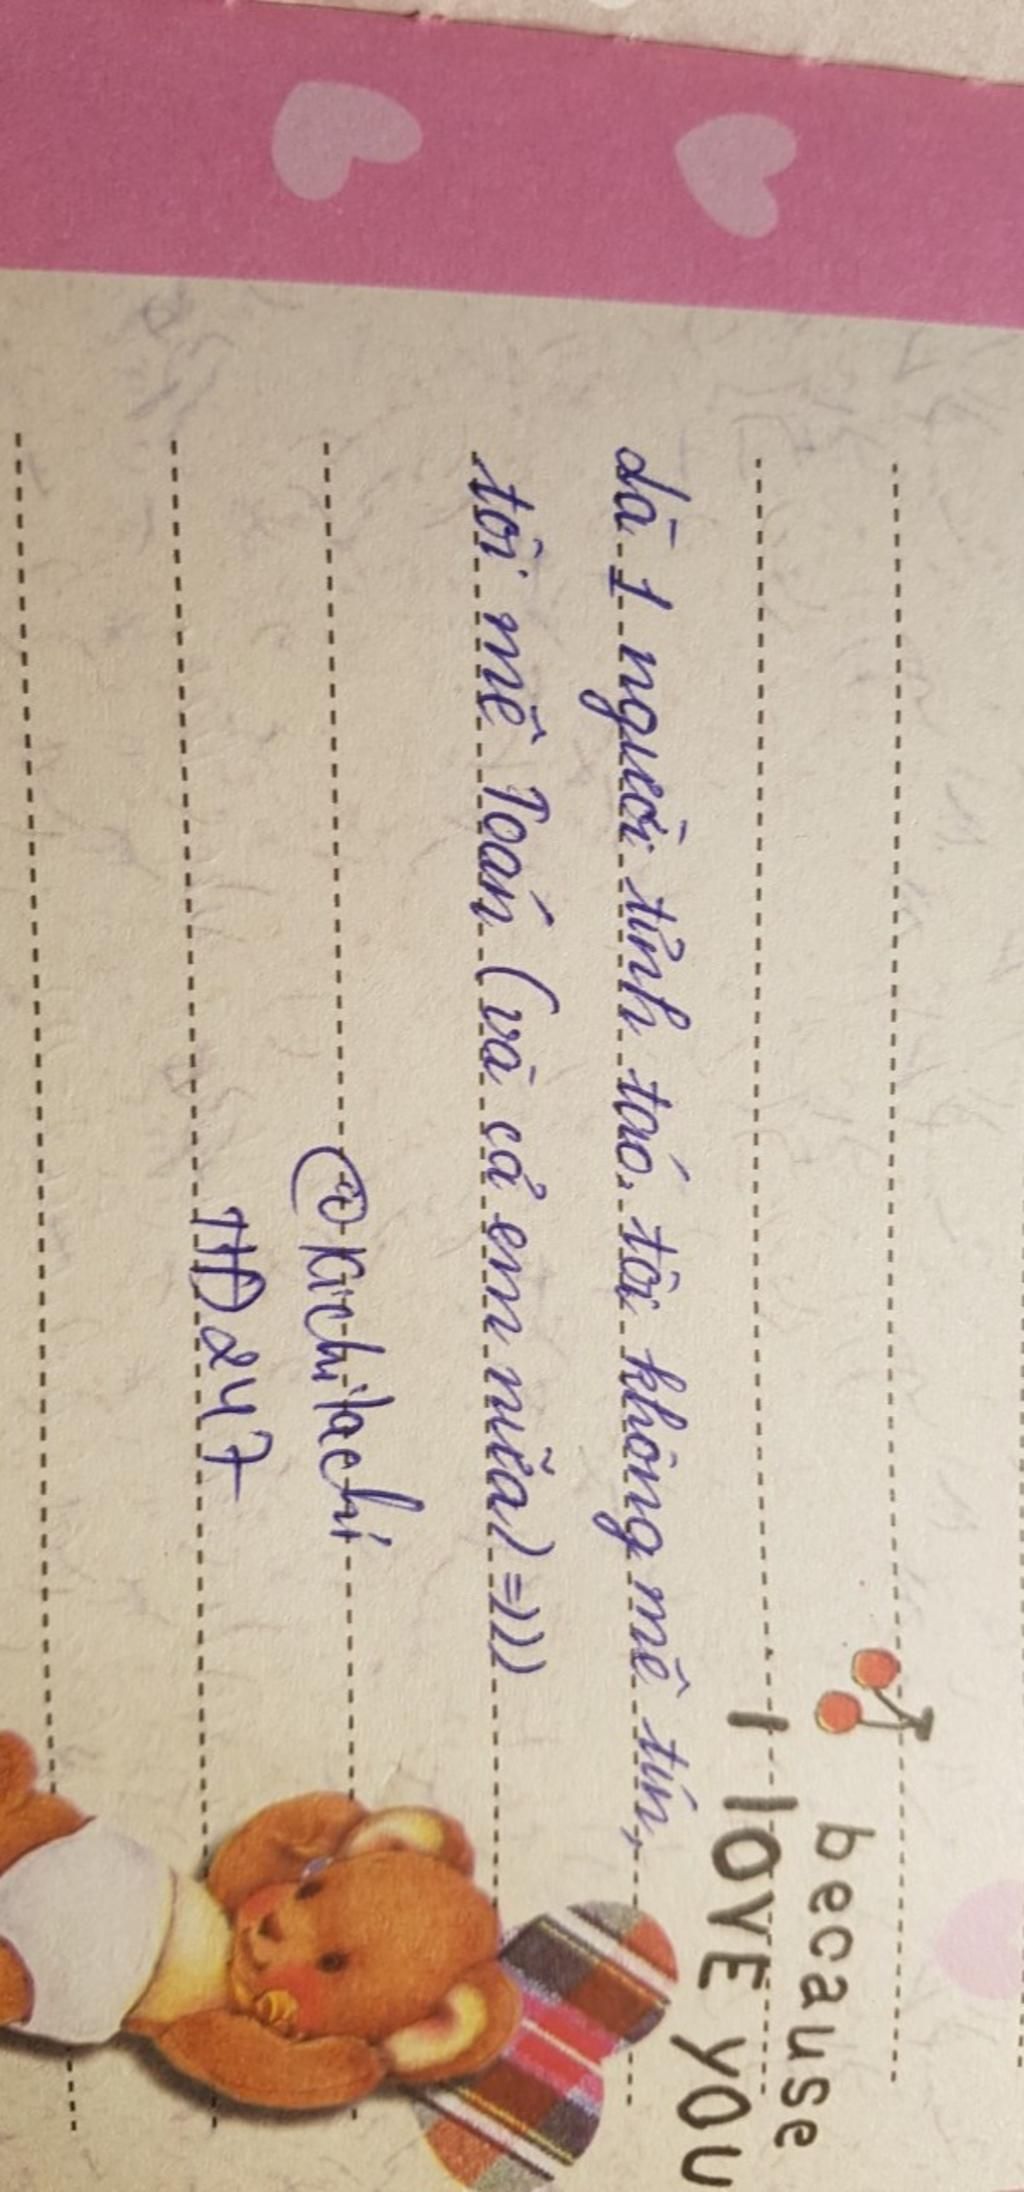 because
I love you
là 1 người tỉnh táo, tôi không mê tín,
tôi mê Toán (và cả em nữa) =)))
@kichilachi
THD247